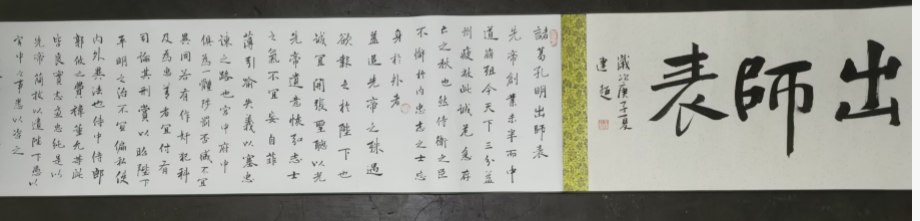 出師表
歲次庚子夏
連超
諸葛孔明出師表
先帝創業未半而中
道崩殂今天下三分益
州疲敝此誠危急存
亡之秋也然侍衛之臣
不懈於內忠志之士忘
身於外者
蓋追先帝之殊遇
欲報之於陛下也
誠宜開張聖聽以光
先帝遺德恢弘志士
之氣不宜妄自菲
薄引喻失義以塞忠
諫之路也宮中府中
俱為一體陟罰臧否不宜
異同若有作奸犯科
及為忠善者宜付有
司論其刑賞以昭陛下
平明之治不宜偏私使
內外異法也侍中侍郎
郭攸之費禕董允等此
皆良實志慮忠純是以
先帝簡拔以遺陛下愚以
宮中之事悉以咨之